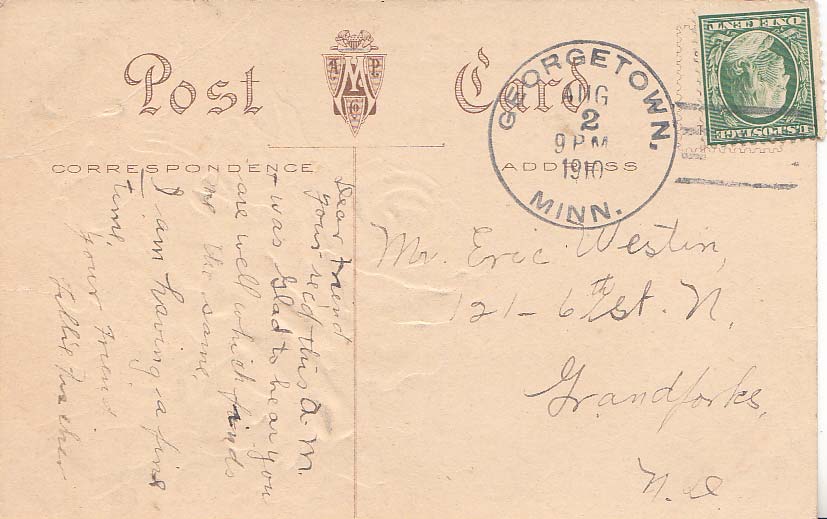 Post Card
A M P
Co
CORRESPONDENCE
ADDRESS
GEORGETOWN,
AUG
2
9 PM
1910
MINN.
U.S. POSTAGE
ONE CENT
Dear Friend
your rec'd this A. M.
& was glad to hear you
are well which finds
me the same.
I am having a fine
time.
your Friend
Tillie
Mr. Eric Westin,
121 - 6th st. N.
Grandforks,
N. D